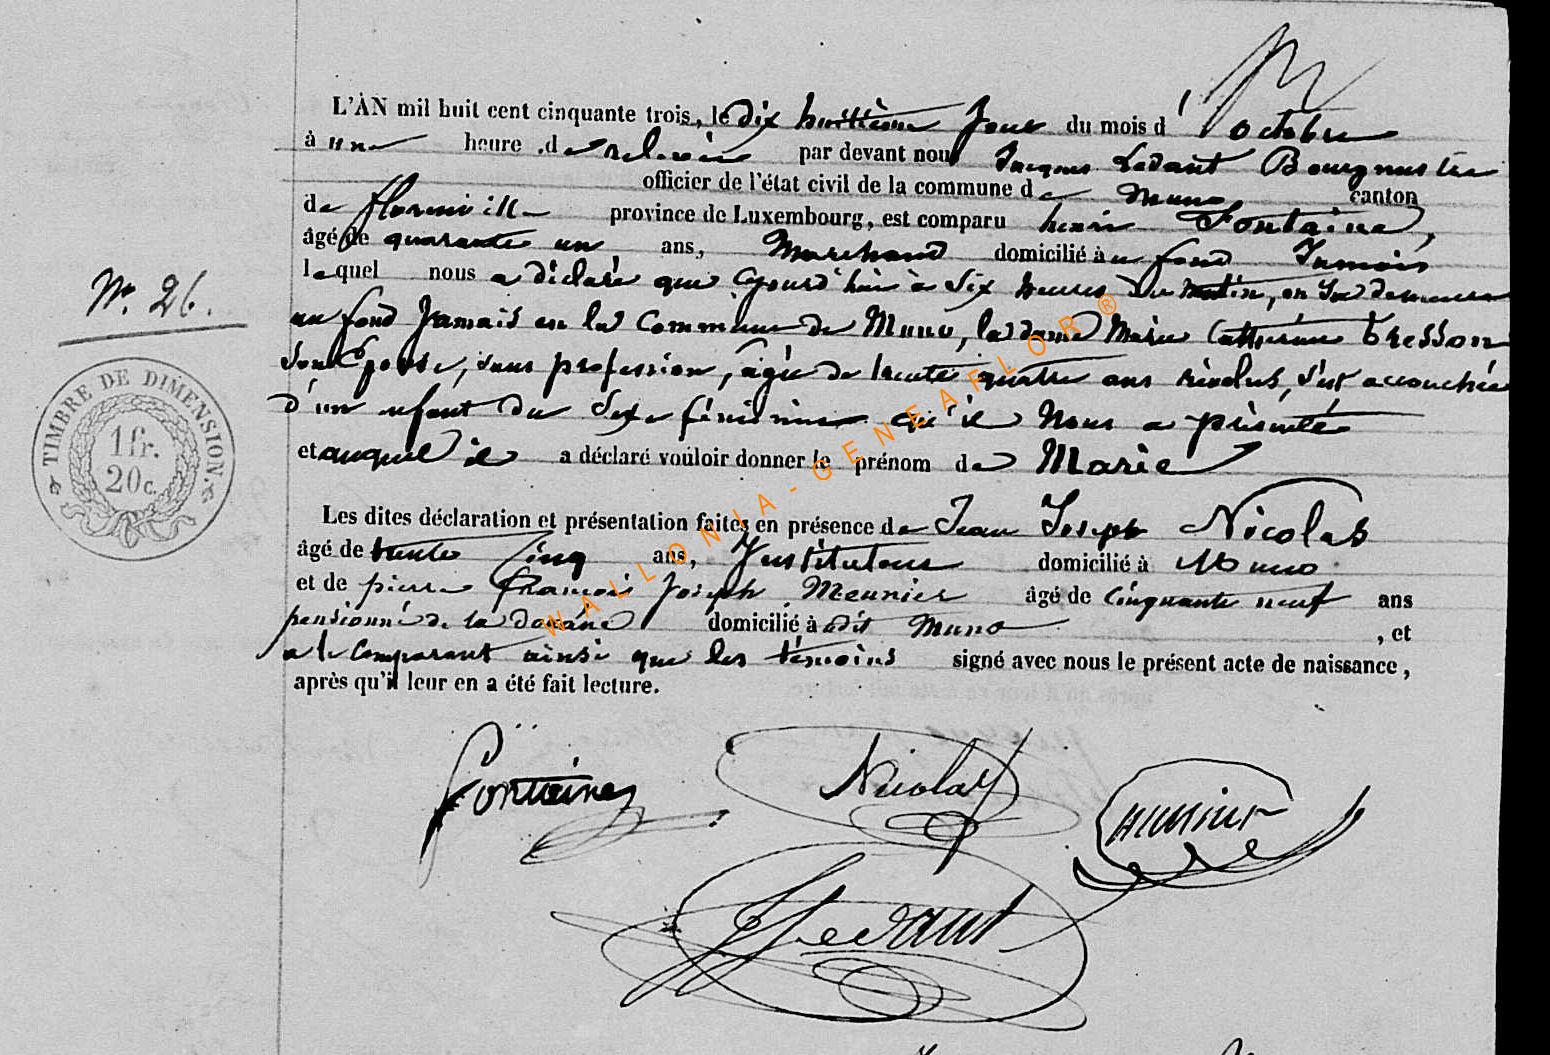 L'AN mil huit cent cinquante trois, le dix huitième jour du mois d'octobre
à une heure de relevée par devant nous Jacques Ledant Bourgmestre
officier de l'état civil de la commune de Muno canton
de florenville province de Luxembourg, est comparu henri Fontaine,
âgé de quarante un ans, Marchand domicilié au fond Jamais
lequel nous a déclaré que cejourd'hui à Six heures du matin, en sa demeure
au fond Jamais en la Commune de Muno, la dame Marie Catherine Tresson
son Epouse, sans profession, âgée de trente quatre ans révolus, s'est accouchée
d'un enfant du Sexe féminin qu'il Nous a présenté
et auquel il a déclaré vouloir donner le prénom de Marie
Nº. 26.
TIMBRE DE DIMENSION.
1 fr.
20 c.
Les dites déclaration et présentation faites en présence de Jean Joseph Nicolas
âgé de trente Cinq ans, Instituteur domicilié à Muno
et de pierre françois Joseph Meunier âgé de cinquante neuf ans
pensionné de la douane domicilié à dit Muno , et
a le Comparant ainsi que les témoins signé avec nous le présent acte de naissance,
après qu'il leur en a été fait lecture.
Fontaine Nicolas Meunier
JLedant
WALLONIA-GENEAFLOR®